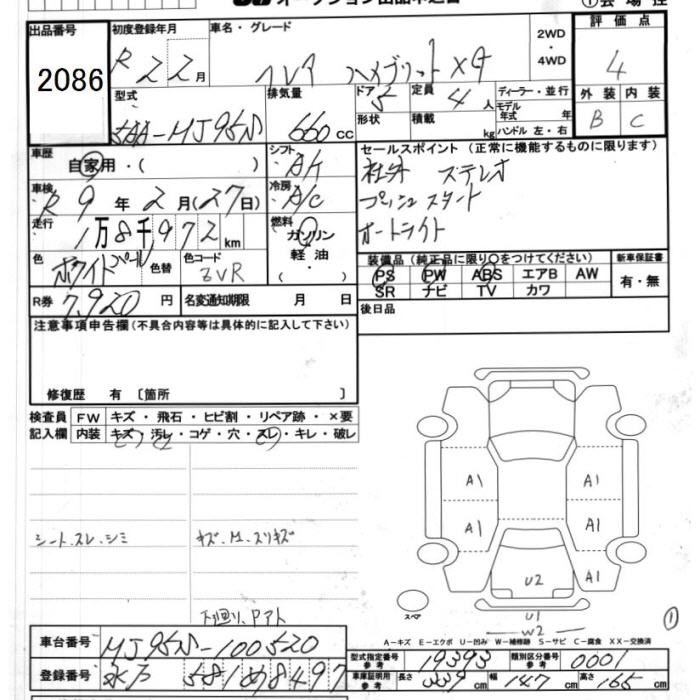 オークション出品申込書
① 会場控
出品番号 初度登録年月 車名・グレード 2WD・4WD 評価点
2086 R 2 2月 ハイブリット XG 4
型式 排気量 ドア 定員 ディーラー・並行 外装 内装
5AA-MJ95S 660 cc 5 4人 モデル年式 年 B C
形状 積載 kg ハンドル 左・右
車歴 シフト セールスポイント(正常に機能するものに限ります)
自家用・( ) A/T 社外 ステレオ
車検 冷房 プッシュスタート
R 9年 2月(27日) A/C オートライト
走行 燃料
1万8千972km ガソリン 軽油・
色 色替 色コード 装備品(純正品に限り○をつけてください) 新車保証書
ホワイトパール ZVR PS PW ABS エアB AW 有・無
SR ナビ TV カワ
R券 7,920円 名変通知期限 月 日 後日品
注意事項申告欄(不具合内容等は具体的に記入して下さい)
修復歴 有 〔箇所 〕
検査員 FW キズ・飛石・ヒビ割・リペア跡・×要
記入欄 内装 キズ・汚レ・コゲ・穴・スレ・キレ・破レ
シート、スレ、シミ キズ、M、スリキズ
下廻り、Pアト
A1 A1
A1 A1
U2 A1
スペア U1 ①
W2
A-キズ E-エクボ U-凹み W-補修跡 S-サビ C-腐食 XX-交換済
車台番号 MJ95S-100520
登録番号 水戸 581 8497
型式指定番号 参考 19393 類別区分番号 参考 0001
車庫証明用 参考 長さ 339cm 幅 147cm 高さ 165cm